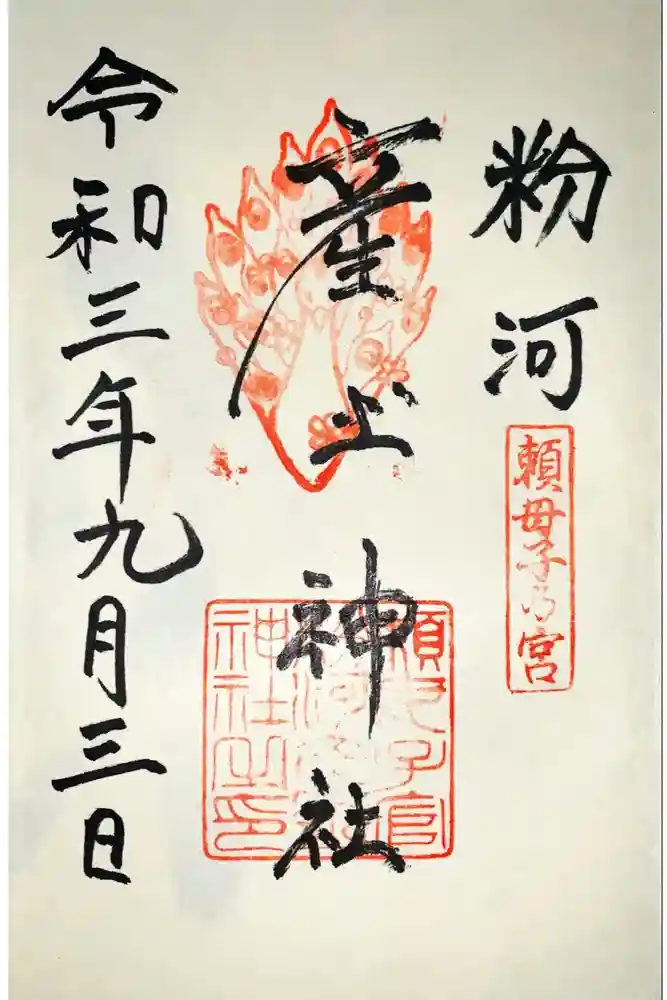 粉河
頼母子乃宮
産土神社
令和三年九月三日